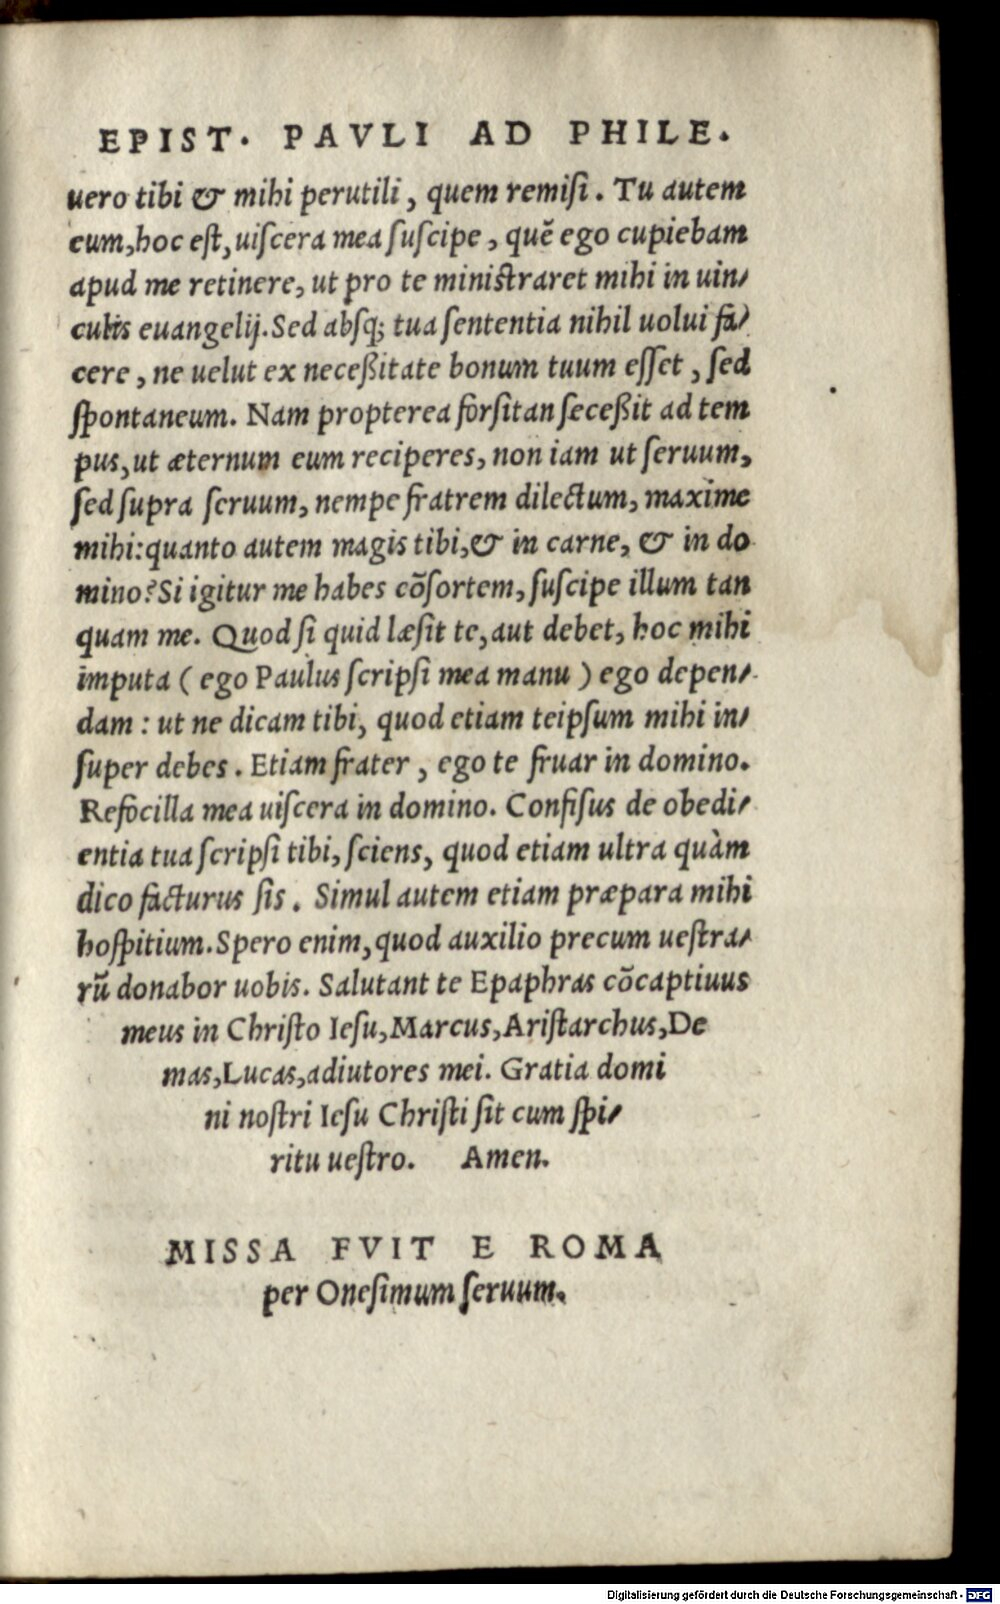 EPIST. PAVLI AD PHILE.
uero tibi & mihi perutili, quem remisi. Tu autem
eum, hoc est, uiscera mea suscipe, quẽ ego cupiebam
apud me retinere, ut pro te ministraret mihi in uin/
culis euangelij. Sed absq; tua sententia nihil uolui fa/
cere, ne uelut ex neceßitate bonum tuum esset, sed
spontaneum. Nam propterea forsitan seceßit ad tem
pus, ut æternum eum reciperes, non iam ut seruum,
sed supra seruum, nempe fratrem dilectum, maxime
mihi: quanto autem magis tibi, & in carne, & in do
mino? Si igitur me habes cõsortem, suscipe illum tan
quam me. Quod si quid læsit te, aut debet, hoc mihi
imputa ( ego Paulus scripsi mea manu ) ego depen/
dam : ut ne dicam tibi, quod etiam teipsum mihi in/
super debes. Etiam frater, ego te fruar in domino.
Refocilla mea uiscera in domino. Confisus de obedi/
entia tua scripsi tibi, sciens, quod etiam ultra quàm
dico facturus sis. Simul autem etiam præpara mihi
hospitium. Spero enim, quod auxilio precum uestra/
rũ donabor uobis. Salutant te Epaphras cõcaptiuus
meus in Christo Iesu, Marcus, Aristarchus, De
mas, Lucas, adiutores mei. Gratia domi
ni nostri Iesu Christi sit cum spi/
ritu uestro. Amen.
MISSA FVIT E ROMA
per Onesimum seruum.
Digitalisierung gefördert durch die Deutsche Forschungsgemeinschaft - DFG